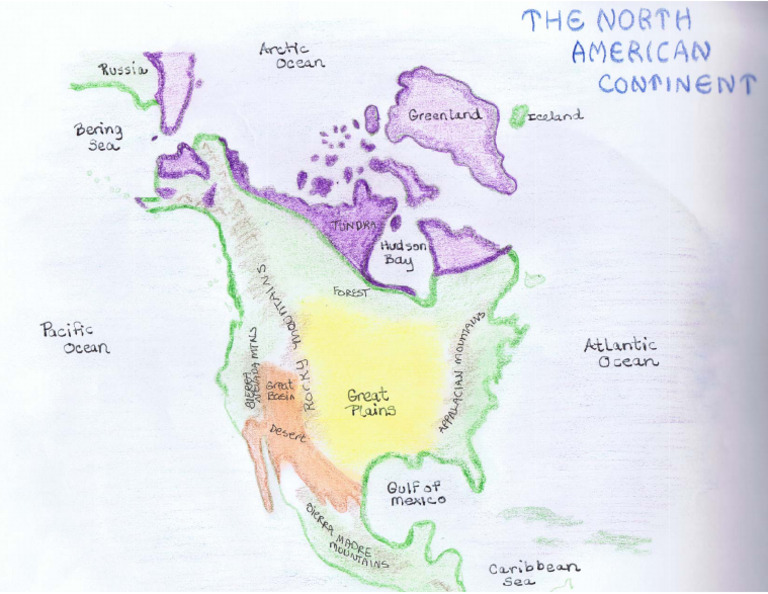 THE NORTH
AMERICAN
CONTINENT
Arctic
Ocean
Russia
Greenland
Iceland
Bering
Sea
TUNDRA
Hudson
Bay
FOREST
ROCKY MOUNTAINS
Pacific
Ocean
SIERRA
NEVADA MTNS
Great
Basin
Great
Plains
APPALACIAN MOUNTAINS
Atlantic
Ocean
Desert
Gulf of
Mexico
SIERRA MADRE
MOUNTAINS
Caribbean
Sea